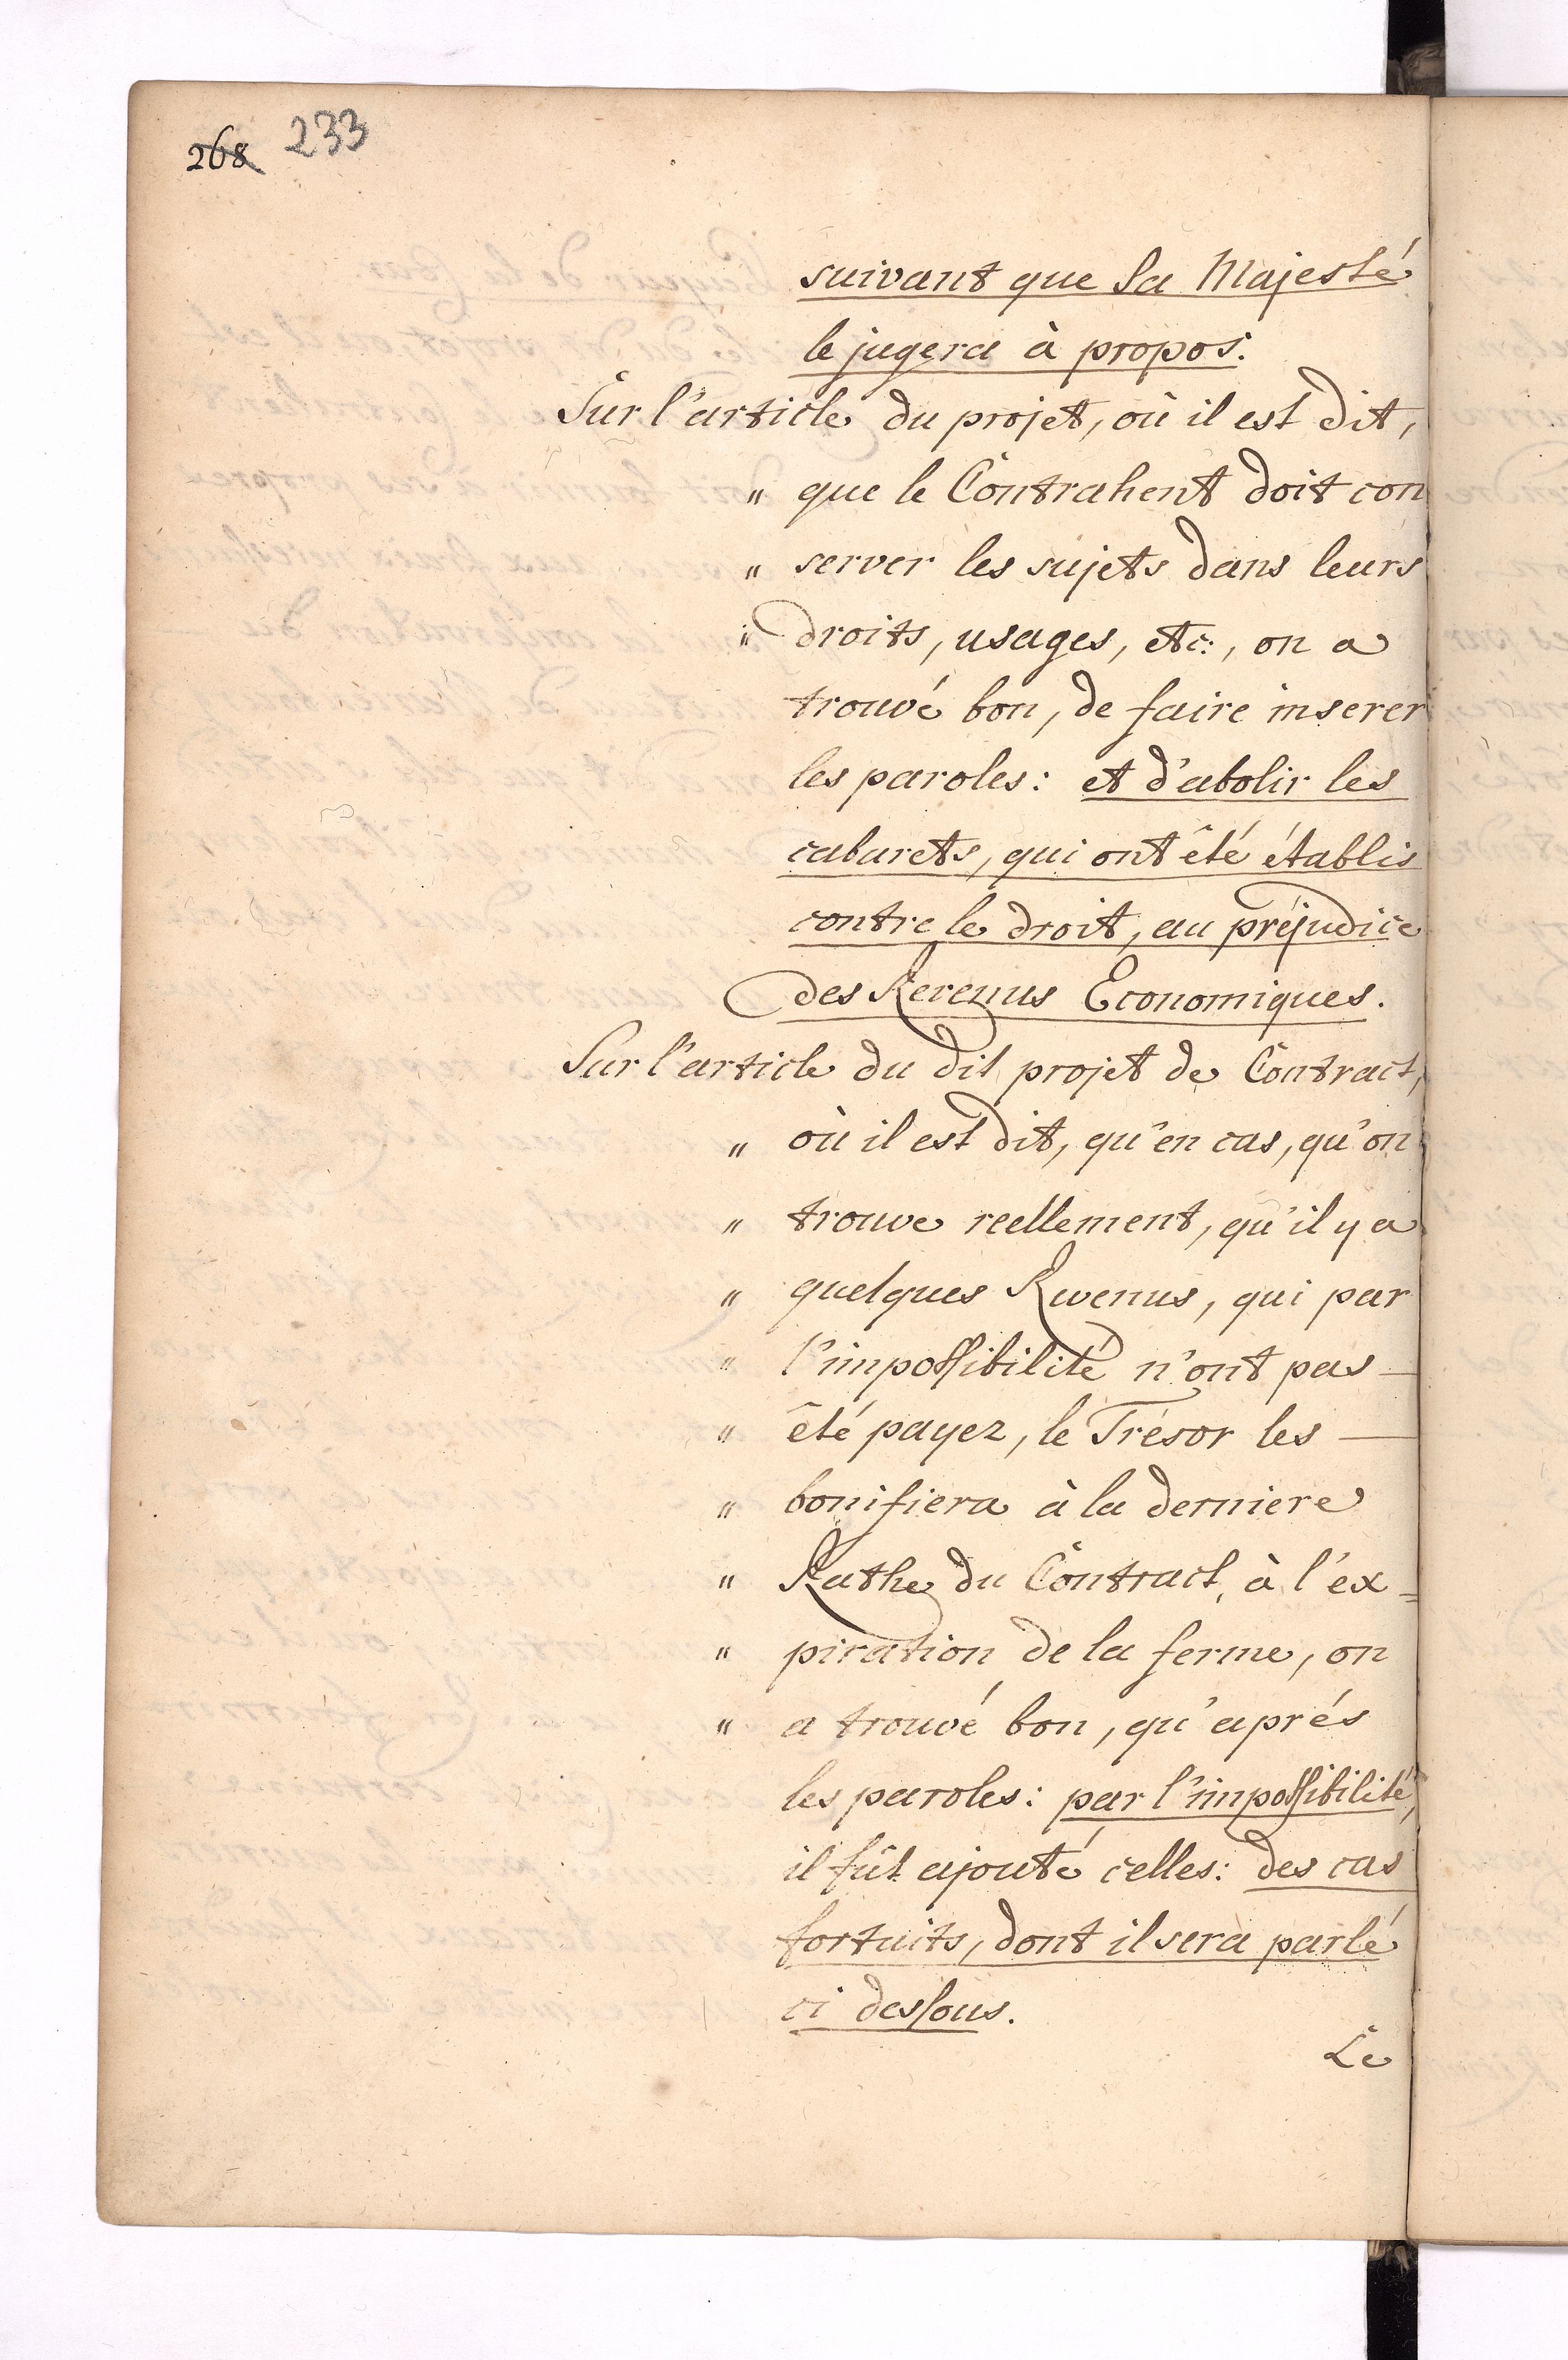 268 233
suivant que Sa Majesté
le jugera à propos.
Sur l'article du projet, où il est dit,
" que le Contrahent doit con
" server les sujets dans leurs
" droits, usages, etc:, on a
trouvé bon, de faire inserer
les paroles: et d'abolir les
cabarets, qui ont êté établis
contre le droit, au préjudice
des Revenus Economiques.
Sur l'article du dit projet de Contract,
" où il est dit, qu'en cas, qu'on
" trouve reellement, qu'il y a
" quelques Revenus, qui par
" l'impossibilité n'ont pas —
" êté payez, le Trésor les —
" bonifiera à la derniere
" Rathe du Contract, à l'ex=
" piration de la ferme, on
" a trouvé bon, qu'aprés
les paroles: par l'impossibilité,
il fût ajouté celles: des cas
fortuits, dont il sera parlé
ci dessous.
Le